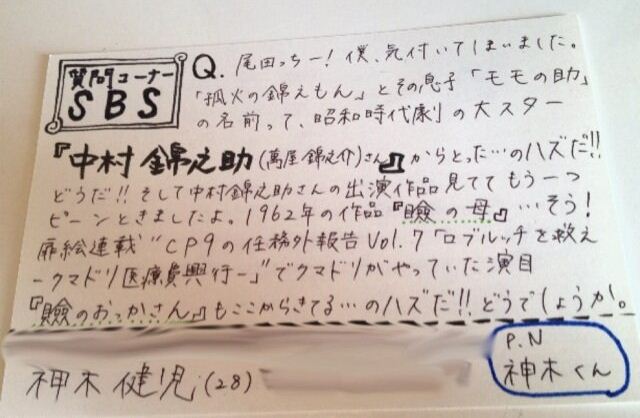 質問コーナー
SBS
Q. 尾田っちー！僕、気付いてしまいました。
「狐火の錦えもん」とその息子「モモの助」
の名前って、昭和時代劇の大スター
『中村錦之助(萬屋錦之介)さん』からとった…のハズだ!!
どうだ!! そして中村錦之助さんの出演作品見ててもう一つ
ピーンときましたよ。1962年の作品『瞼の母』…そう！
扉絵連載“CP9の任務外報告Vol.7「ロブルッチを救え
ークマドリ医療費興行ー」”でクマドリがやっていた演目
『瞼のおっかさん』もここからきてる…のハズだ!! どうでしょうか。
神木健児(28)
P.N
神木くん